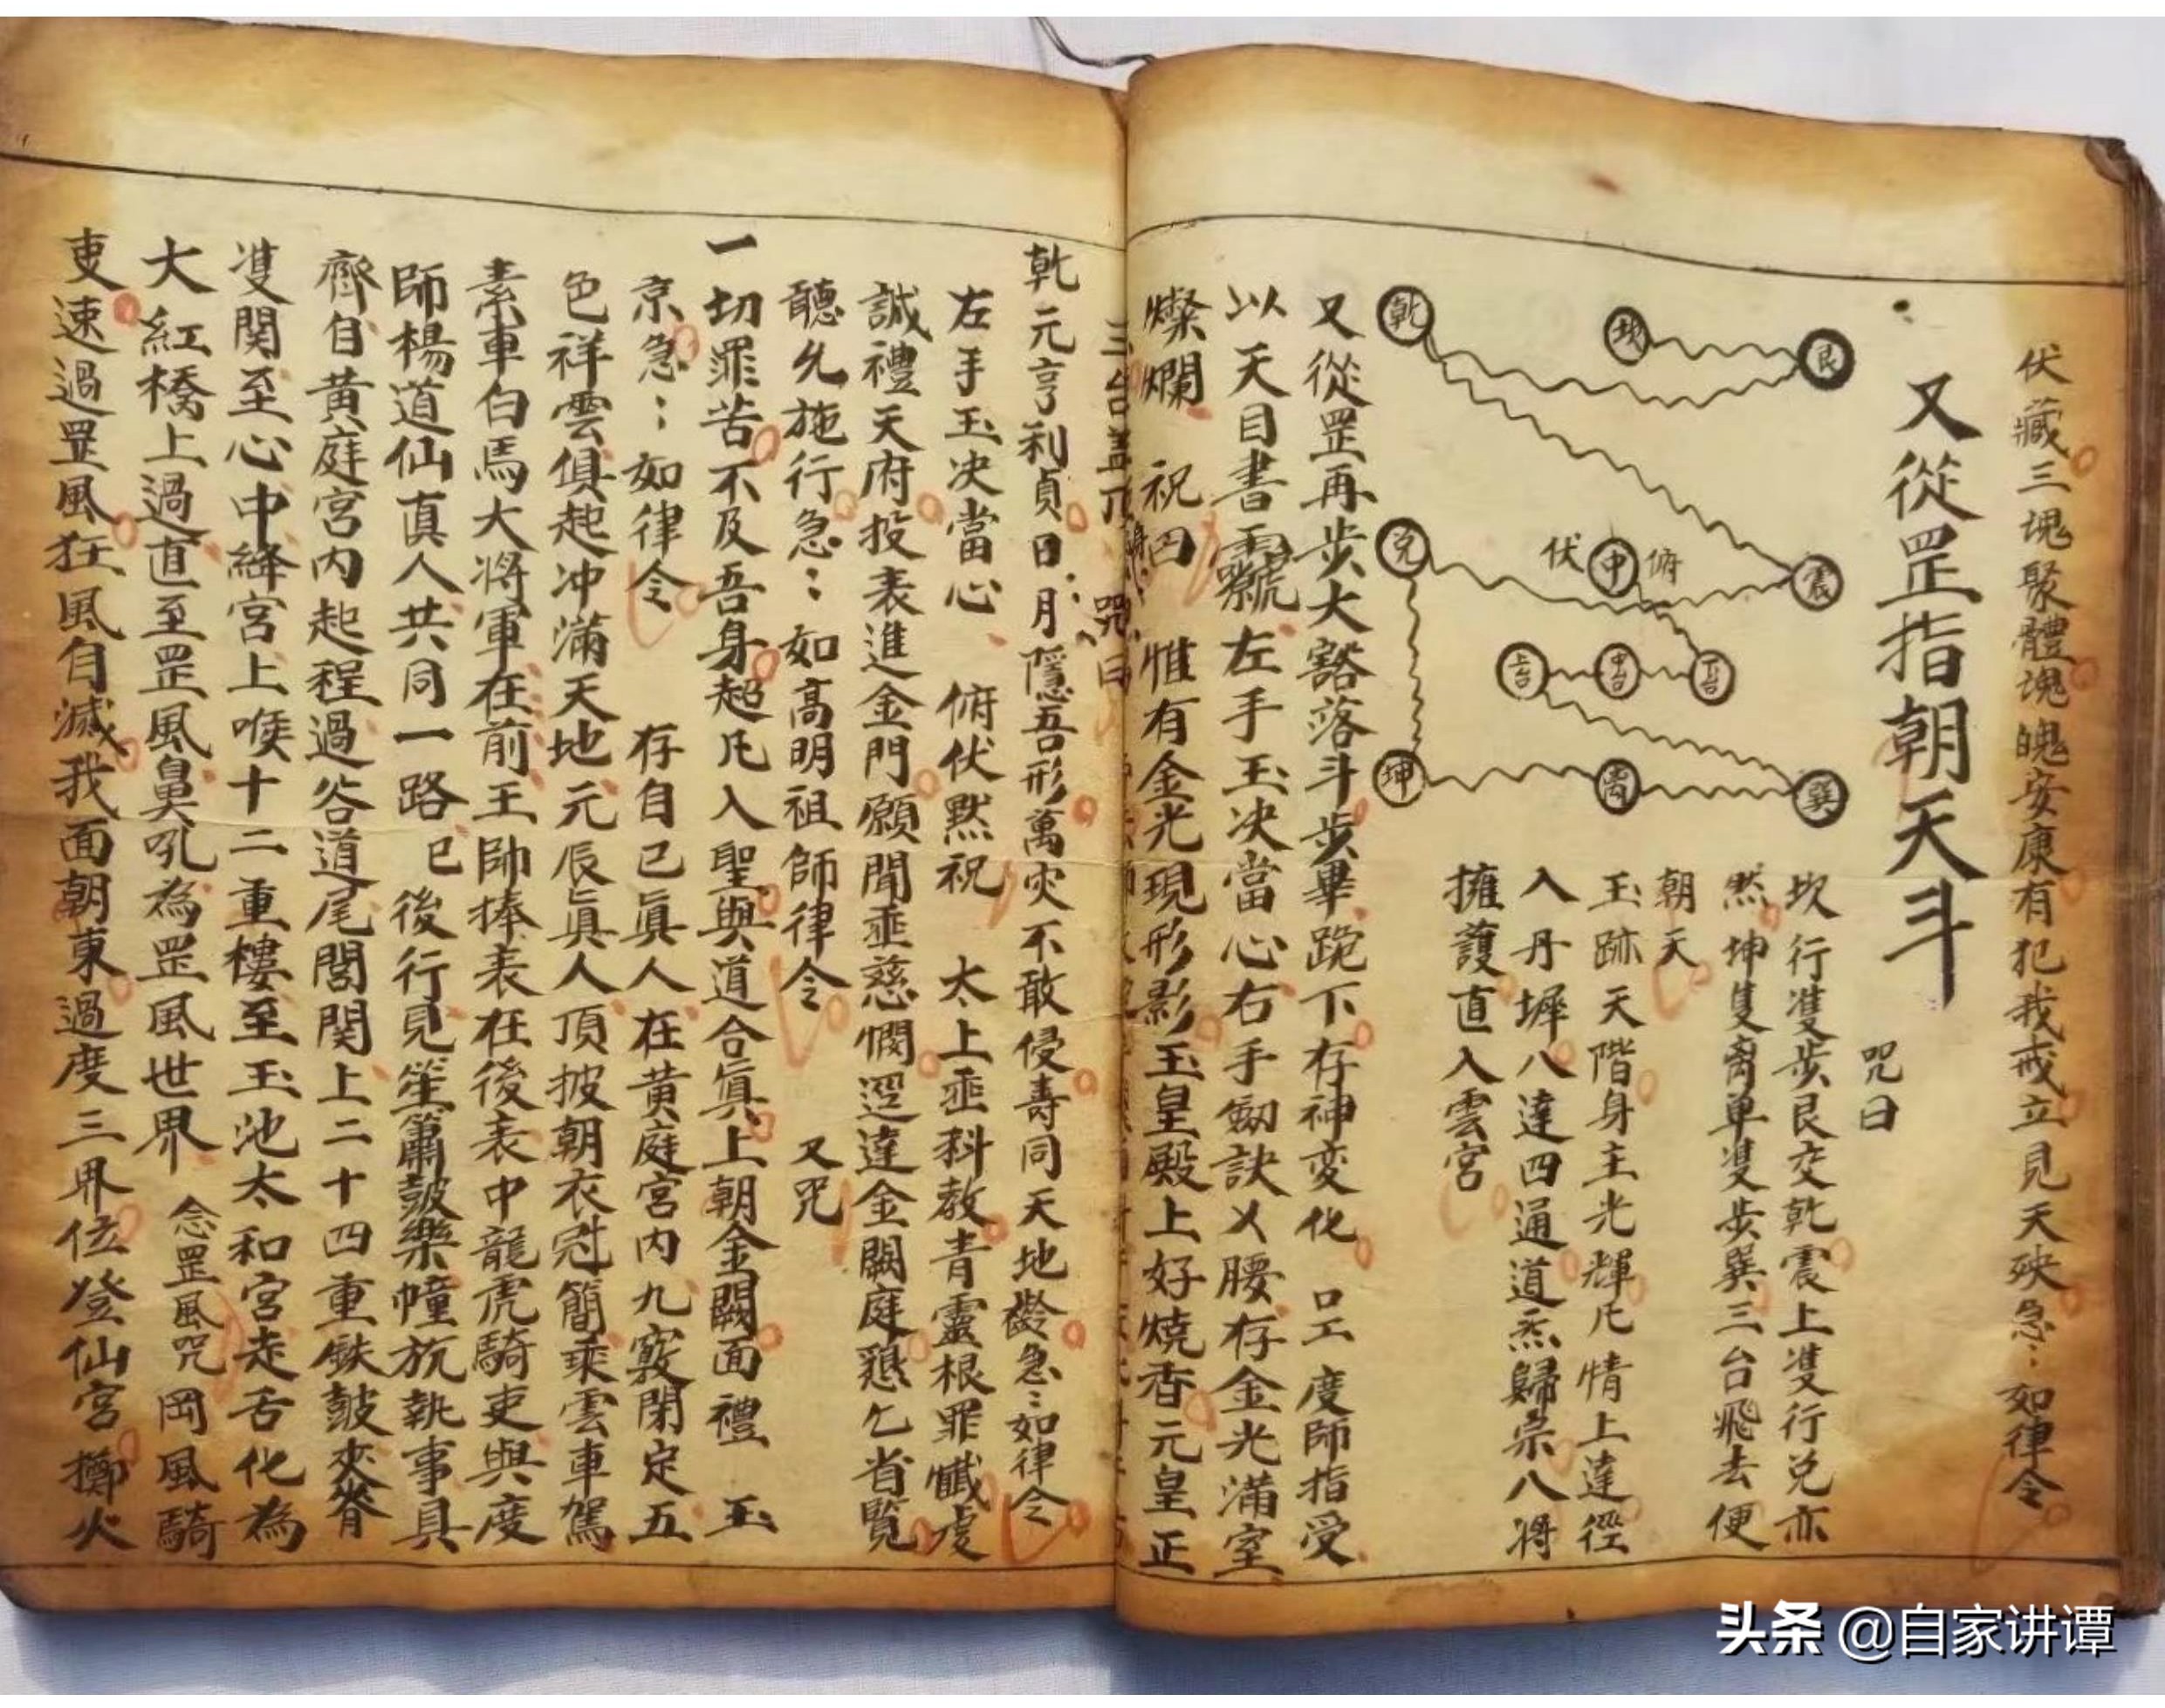 伏藏三魂聚體魂魄安康有犯我戒立見天殃急〻如律令
又從罡指朝天斗
咒曰
坎行䨇步艮交乾震上䨇行兌亦
然坤隻离单䨇步巽三台飛去便
朝天
玉跡天階身主光輝凡情上達徑
入丹墀八達四通道炁歸宗八将
擁護直入雲宮
乾
坎
艮
兌
伏
中
俯
震
上台
中台
下台
坤
离
巽
又從罡再步大豁落斗步畢跪下存神变化 口工度師指受
以天目書 左手玉决當心右手劒訣乂腰存金光滿室
燦爛 祝曰 惟有金光現形影玉皇殿上好燒香元皇正
三台盖 咒曰
乾元亨利貞日月隱吾形萬灾不敢侵壽同天地齡急〻如律令
左手玉决當心 俯伏黙祝 太上垂科教青靈根罪懺虔
誠禮天府投表進金門願聞垂慈憫逕達金闕庭懇乞省覧
聽允施行急〻如高明祖師律令 又咒
一切罪苦不及吾身超凡入聖與道合真上朝金闕面禮 玉
京急〻如律令 存自己真人在黄庭宮内九竅閉定五
色祥雲俱起冲滿天地元辰真人頂披朝衣冠簡乘雲車駕
素車白馬大将軍在前王帥捧表在後表中龍虎騎吏與度
師楊道仙真人共同一路已後行見笙簫皷樂幢旂執事具
齊自黄庭宮内起程過谷道尾閭関上二十四重鉄皷夾脊
䨇関至心中絳宮上喉十二重樓至玉池太和宮走舌化為
大紅橋上過直至罡風鼻吼為罡風世界 念罡風咒 岡風騎
吏速過罡風狂風自滅我面朝東過度三界位登仙宮擲火
头条 @自家讲谭